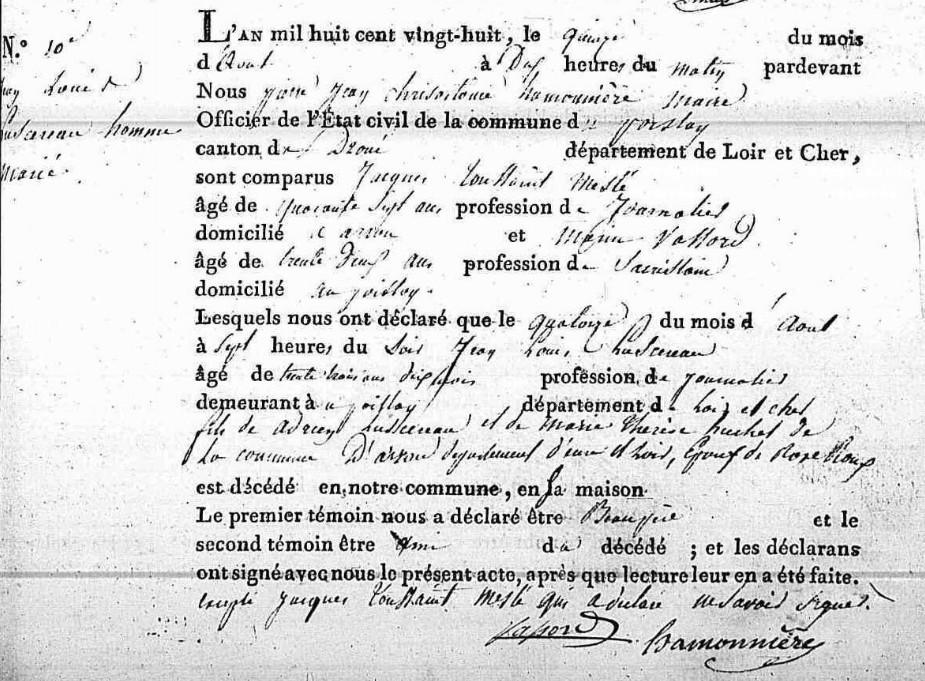 N.° 10e
Jean Louis
homme
marié.
L'AN mil huit cent vingt-huit, le quinze du mois
d'Aout à Dix heures du matin pardevant
Nous pierre Jean Hamonnière Maire
Officier de l'État civil de la commune de poislay
canton de Droué département de Loir et Cher,
sont comparus Jacques toussaint Meslé
âgé de quarante sept ans profession de Journalier
domicilié a arrou et Marin Vassord
âgé de trente deux ans profession de Sacristain
domicilié au poislay.
Lesquels nous ont déclaré que le quatorze du mois d'Aout
à Sept heures du Soir Jean Louis Lussereau
âgé de trente trois ans dix mois profession de journalier
demeurant à au poislay département de Loir et cher
fils de adrien Lussereau et de marie therese huchet de
La commune D'arrou departement d'eure et Loir, Epoux de Rose Roux
est décédé en notre commune, en sa maison
Le premier témoin nous a déclaré être Beaupère et le
second témoin être ami du décédé ; et les déclarans
ont signé avec nous le présent acte, après que lecture leur en a été faite.
excepté jacques toussaint meslé qui a déclaré ne savoir signer.
Vassord Hamonnière